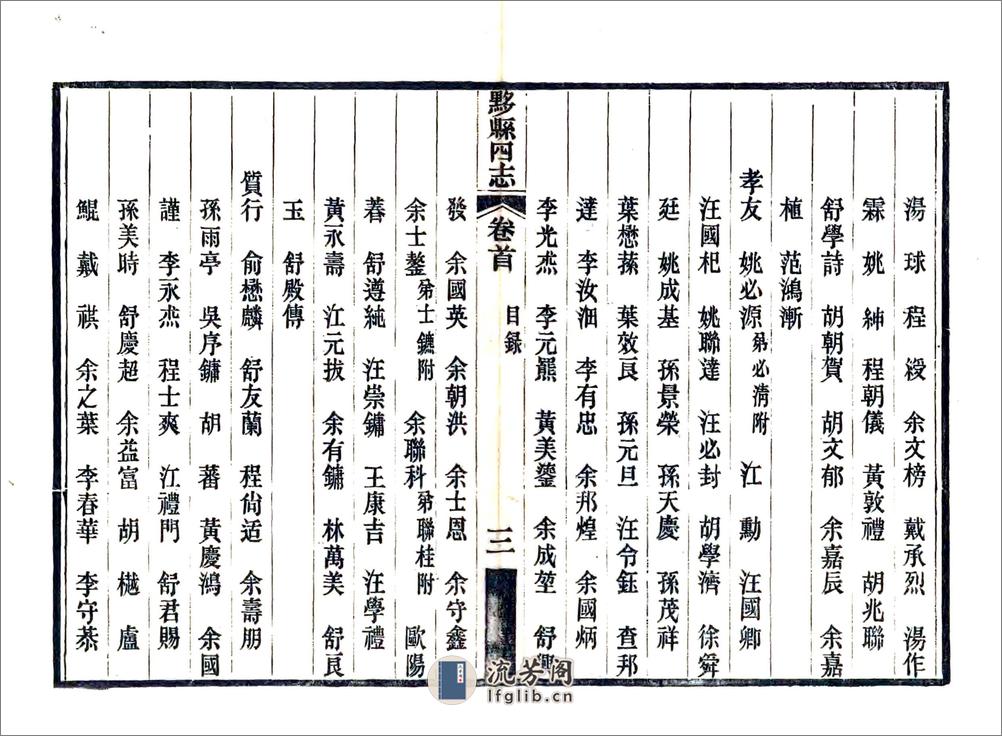 湯球 程綬 余文榜 戴承烈 湯作
霖 姚紳 程朝儀 黃敦禮 胡兆聯
舒學詩 胡朝賀 胡文郁 余嘉辰 余嘉
植 范鴻漸
孝友 姚必源弟必濟附 江勳 汪國卿
汪國杞 姚聯達 汪必封 胡學濟 徐舜
廷 姚成基 孫景榮 孫天慶 孫茂祥
葉懋蓀 葉效良 孫元旦 汪令鈺 查邦
達 李汝沺 李有忠 余邦煌 余國炳
李光杰 李元羆 黃美鎏 余成堃 舒
黟縣四志 卷首 目錄 三
發 余國英 余朝洪 余士恩 余守鑫
余士鏊弟士鑣附 余聯科弟聯桂附 歐陽
蓉 舒遵純 汪崇鏞 王康吉 汪學禮
黃永壽 江元拔 余有鏞 林萬美 舒良
玉 舒殿傳
質行 俞懋麟 舒友蘭 程尙适 余壽朋
孫雨亭 吳序鏞 胡蕃 黃慶鴻 余國
謹 李永杰 程士爽 江禮門 舒君賜
孫美時 舒慶超 余益富 胡樾 盧
鯤 戴祺 余之葉 李春華 李守菾
流芳閣
lfglib.cn